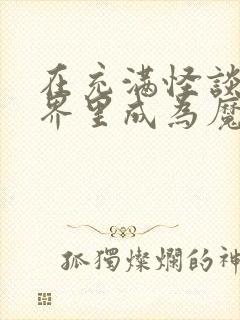 在充滿怪談
界里成為魔
孤獨燦爛的神